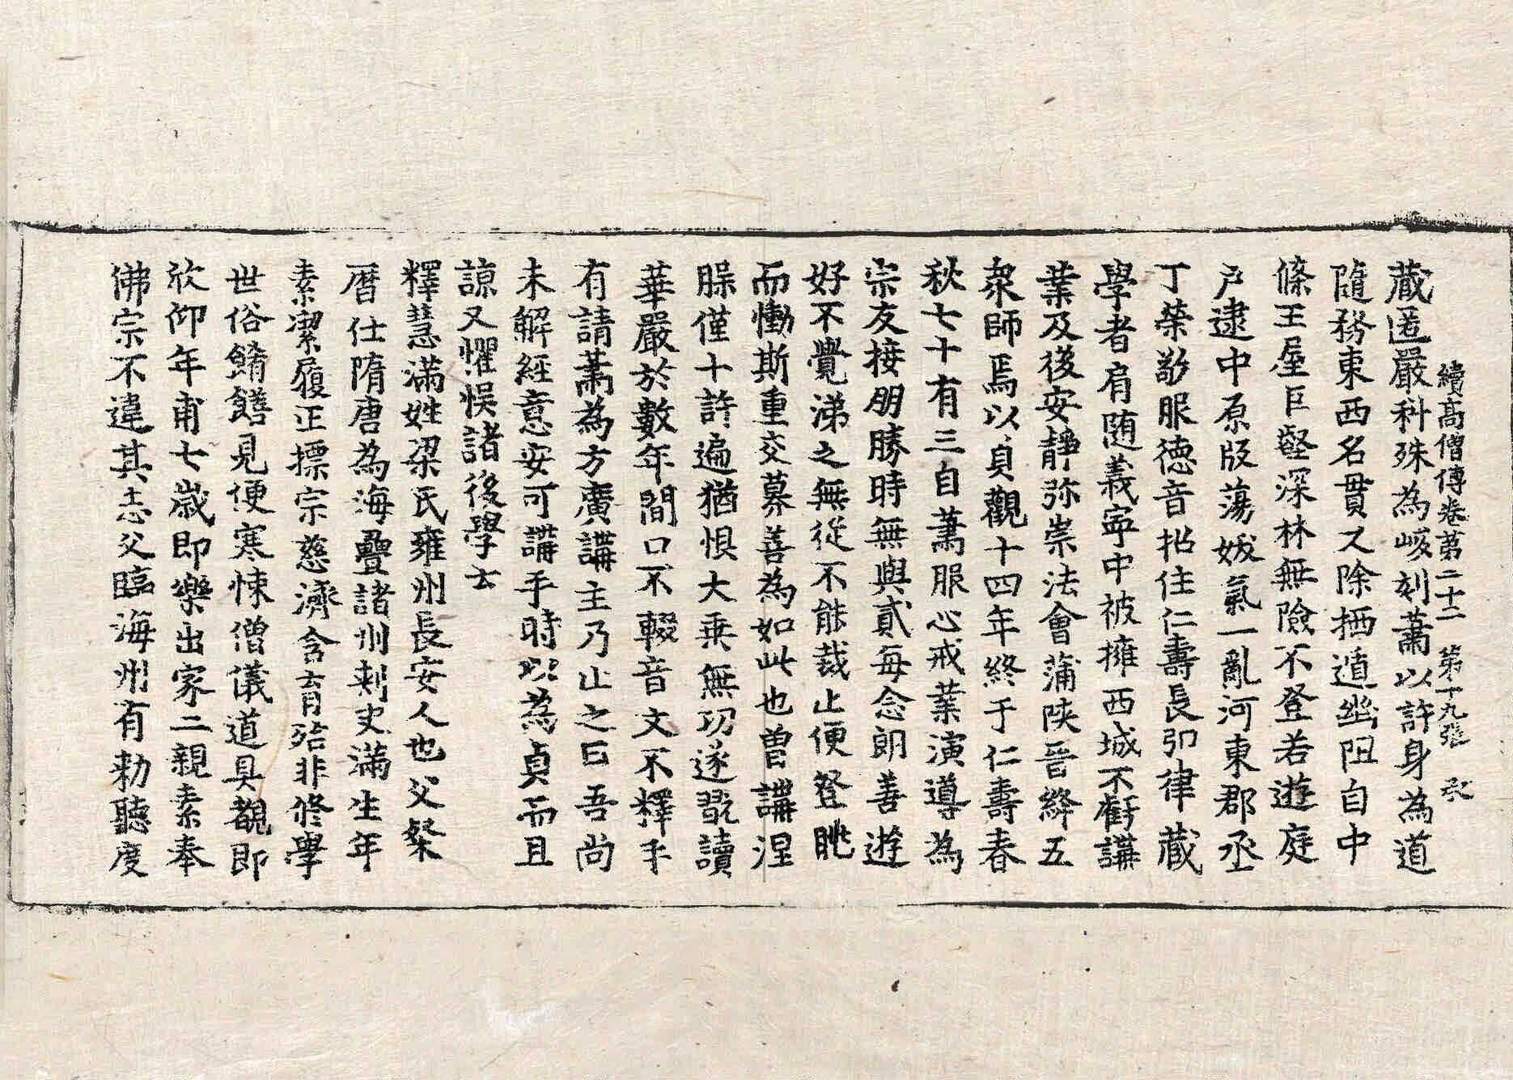 續高僧傳卷第二十二　第十九張
藏逃嚴科殊為峻刻蕭以許身為道
隨務東西名貫又除栖遁幽阻自中
條王屋巨壑深林無險不登若遊庭
戶逮中原版蕩妖氣一亂河東郡丞
丁榮敬服德音招住仁壽長弘律藏
學者肩随義寧中被擁西城不虧講
業及後安靜弥崇法會蒲陝晉絳五
衆師焉以貞觀十四年終于仁壽春
秋七十有三自蕭服心戒業演導為
宗友接朋勝時無與貳每念朗善遊
好不覺涕之無從不能裁止便登眺
而慟斯重交慕善為如此也曽講涅
槃僅十許遍猶恨大乘無功遂翫讀
華嚴於數年間口不輟音文不釋手
有請蕭為方廣講主乃止之曰吾尚
未解經意安可講乎時以為貞而且
諒又懼悞諸後學云
釋慧滿姓梁氏雍州長安人也父粲
暦仕隋唐為海疊諸州刾史滿生年
素潔履正摽宗慈濟含育殆非修學
世俗餚饍見便寒悚僧儀道具覩即
欣仰年甫七歲即樂出家二親素奉
佛宗不違其志父臨海州有勑聽度